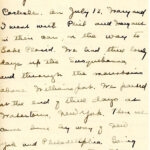 Carlisle, on July 12, Mary and
I went with Phil and Margaret
in their car in the way to
Lake Placid. We had three lovely
days up the Susquehanna
and through the mountains
above Williamsport. We parted
at the end of three days at
Watertown, New York. Then we
came home by way of New
York and Philadelphia. So my